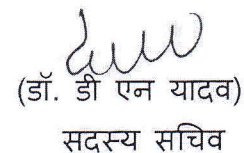 (डॉ. डी एन यादव)
सदस्य सचिव